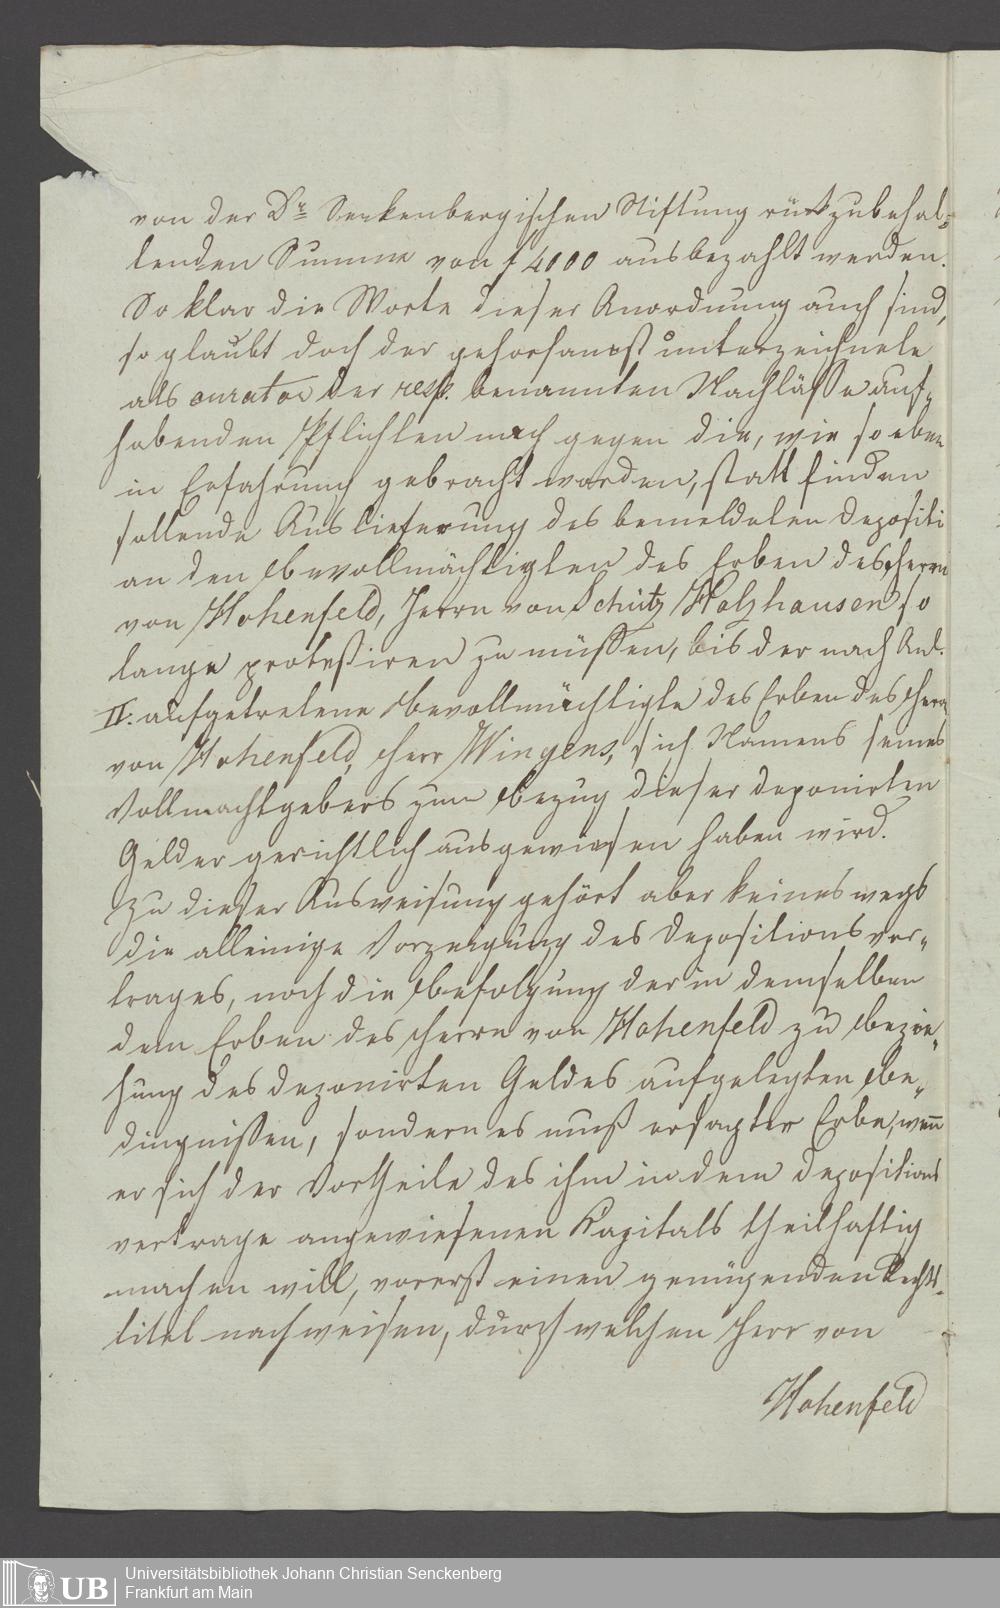 von der Dr. Senkenbergischen Stiftung rückzubehal-
tenden Summe von f 4000 ausbezahlt werden.
So klar die Worte dieser Anordnung auch sind,
so glaubt doch der gehorsamst unterzeichnete
als curator der resp. benannten Nachläße auf-
habenden Pflichten nach gegen die, wie so eben
in Erfahrung gebracht worden, statt finden
sollende Auslieferung des bemeldeten Depositi
an den Bevollmächtigten des Erben des Herrn
von Hohenfeld, Herrn von Schütz Holzhausen so
lange protestiren zu müßen, bis der nach Anl.
II. aufgetretene Bevollmächtigte des Erben des Herrn
von Hohenfeld, Herr Wingens, sich Namens seines
Vollmachtgebers zum Bezug dieser deponirten
Gelder gerichtlich ausgewiesen haben wird.
Zu dieser Ausweisung gehört aber keineswegs
die alleinige Vorzeigung des Depositionsver-
trages, noch die Befolgung der in demselben
dem Erben des Herrn von Hohenfeld zu Bezie-
hung des deponirten Geldes aufgelegten Be-
dingnißen, sondern es muß ersagter Erbe, wenn
er sich der Vortheile des ihm in dem Depositions
vertrage angewiesenen Kapitals theilhaftig
machen will, vorerst einen genügenden Rechts-
titel nachweisen, durch welchen Herr von
Hohenfeld
UB
Universitätsbibliothek Johann Christian Senckenberg
Frankfurt am Main